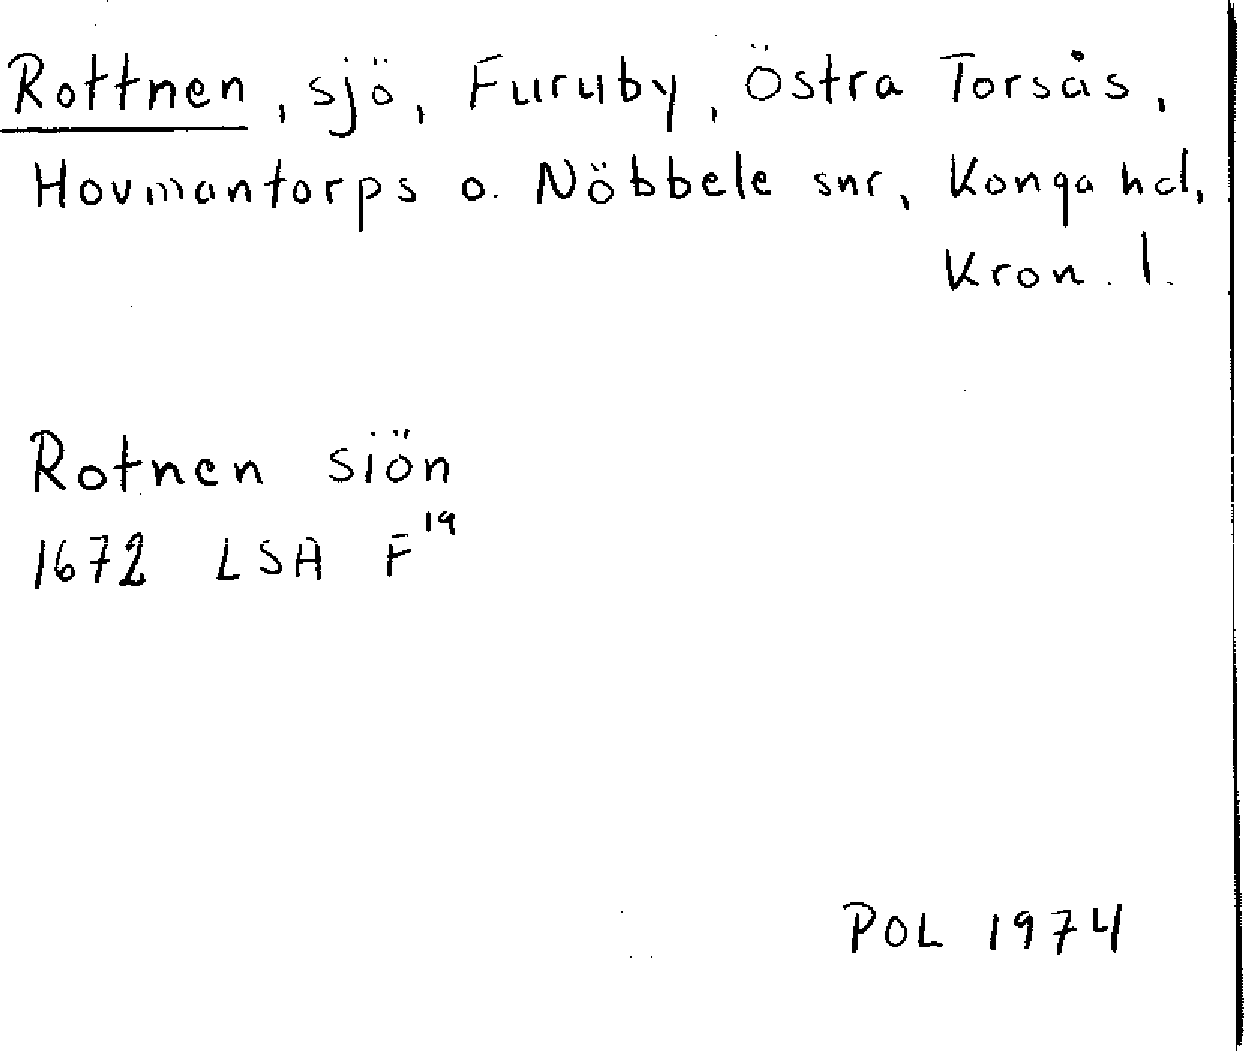 Rottnen, sjö, Furuby, Östra Torsås,
Hovmantorps o. Nöbbele snr, Konga hd,
Kron. l.
Rotnen siön
1672 LSA F19
POL 1974